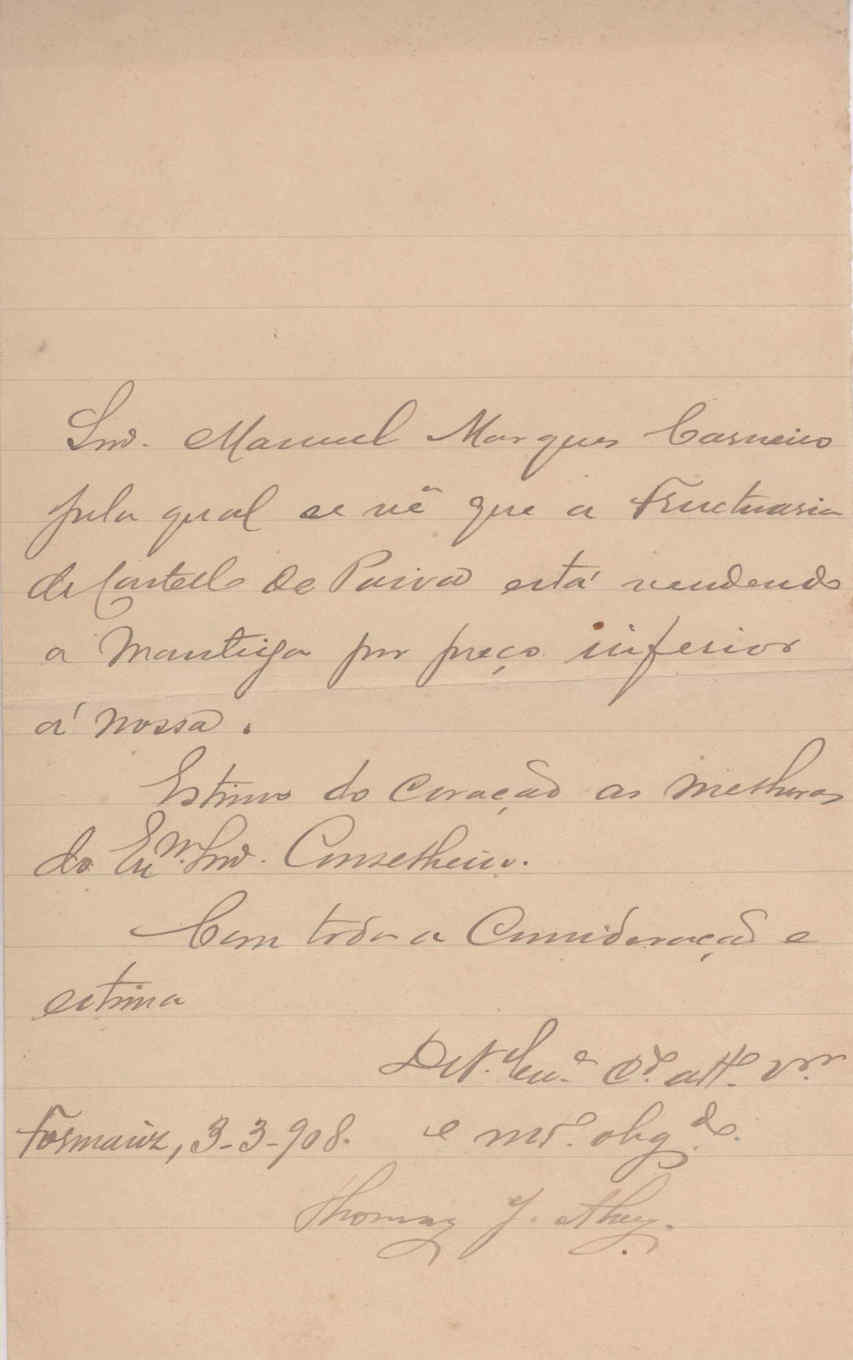 Snr. Manuel Marques Carneiro
pela qual se vê que a Fructuaria
de Castello de Paiva está vendendo
a Manteiga por preço inferior
á nossa.
Estimo do coração as melhoras
do Exm.º Snr. Conselheiro.
Com toda a Consideração e
estima
De V. Ex.ª Cr.º att.º V.ºr
Formariz, 3-3-908. e mt.º obrg.do
Thomaz J.